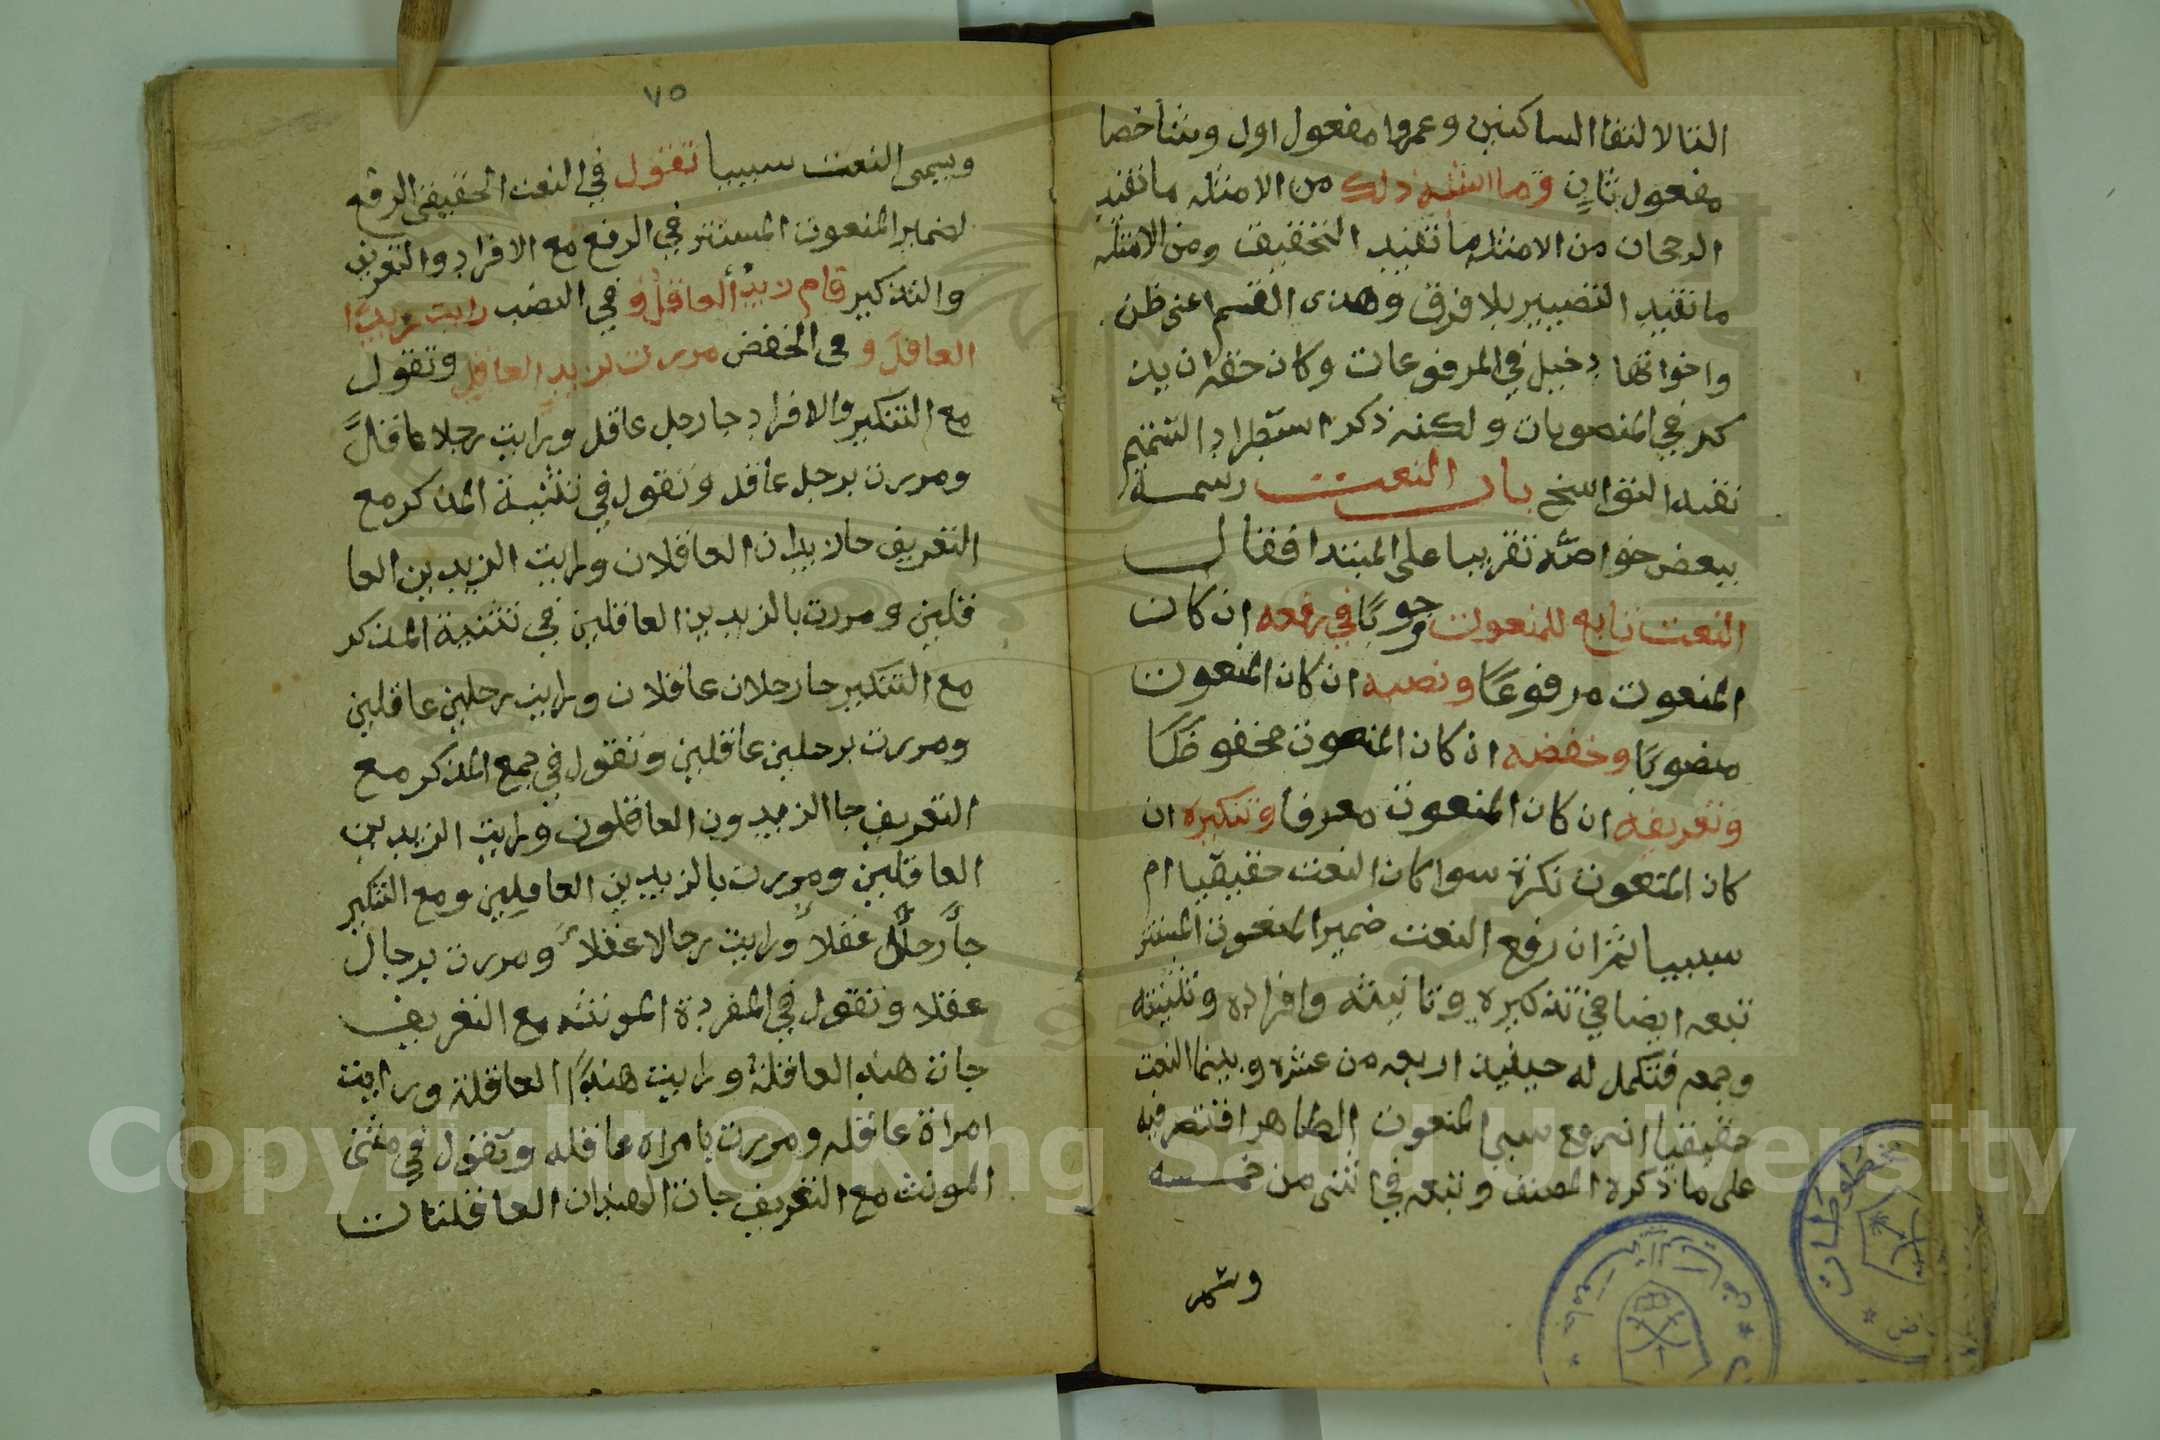 التا لالتقا الساكنين وعمروا مفعول اول وشاخصا
مفعول ثان وما اشبه ذلك من الامثله ما تفيد
الرجحان من الامثله ما تفيد التحقيق ومن الامثله
ما تفيد التصيير بلا فرق وهذى القسم اعنى ظن
واخواتها دخيل في المرفوعات وكان حقه ان يذ
كر في المنصوبات ولكنه ذكر استطراد التتميم
بقيه النواسخ باب النعت رسمه
ببعض خواصه تقريبا على المبتدا فقال
النعت تابع للمنعوت وجوبًا في رفعه ان كان
المنعوت مرفوعًا ونصبه ان كان المنعوت
منصوبًا وخفضه ان كان المنعوت مخفوظًا
وتعريفه ان كان المنعوت معرفا وتنكيره ان
كان المنعوت نكرة سوا كان النعت حقيقيا ام
سببيا ثم ان رفع النعت ضمير المنعوت المستتر
تبعه ايضا في تذكيره وتانيثه وافراده وتثنيته
وجمعه فتكمل له حينيذ اربعه من عشره ويسما النعت
حقيقيا ان رفع سببى المنعوت الظاهر اقتصر فيه
على ما ذكره المصنف وتبعه في اثنى من خمسه
٧٥
ويسمى النعت سببيا تقول في النعت الحقيقى الرفع
لضمير المنعوت المستتر في الرفع مع الافراد والتعريف
والتذكير قام زيدٌ العاقلُ و في النصب رايت زيدًا
العاقلَ و فى الخفض مررت بزيدٍ العاقلِ وتقول
مع التنكير والافراد جا رجل عاقل ورايت رجلا عاقلًا
ومررت برجل عاقل وتقول في تثنية المذكر مع
التعريف جا الزيدان العاقلان ورايت الزيدين العا
قلين ومررت بالزيدين العاقلين في تثنية المذكر
مع التنكير جا رجلان عاقلان ورايت رجلين عاقلين
ومررت برجلين عاقلين وتقول في جمع المذكر مع
التعريف جا الزيدون العاقلون ورايت الزيدين
العاقلين ومررت بالزيدين العاقلين ومع التنكير
جاء رجال عقلاء ورايت رجالا عقلاء ومررت برجال
عقلا وتقول في المفردة المونثه مع التعريف
جات هند العاقلة ورايت هندًا العاقلة ورايت
امراة عاقله ومررت بامراه عاقله وتقول في مثنى
المونث مع التعريف جات الهندان العاقلتان
Copyright © King Saud University